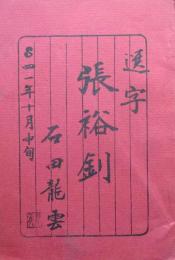 選字
張裕釗
S四一年十月中旬
石田龍雲